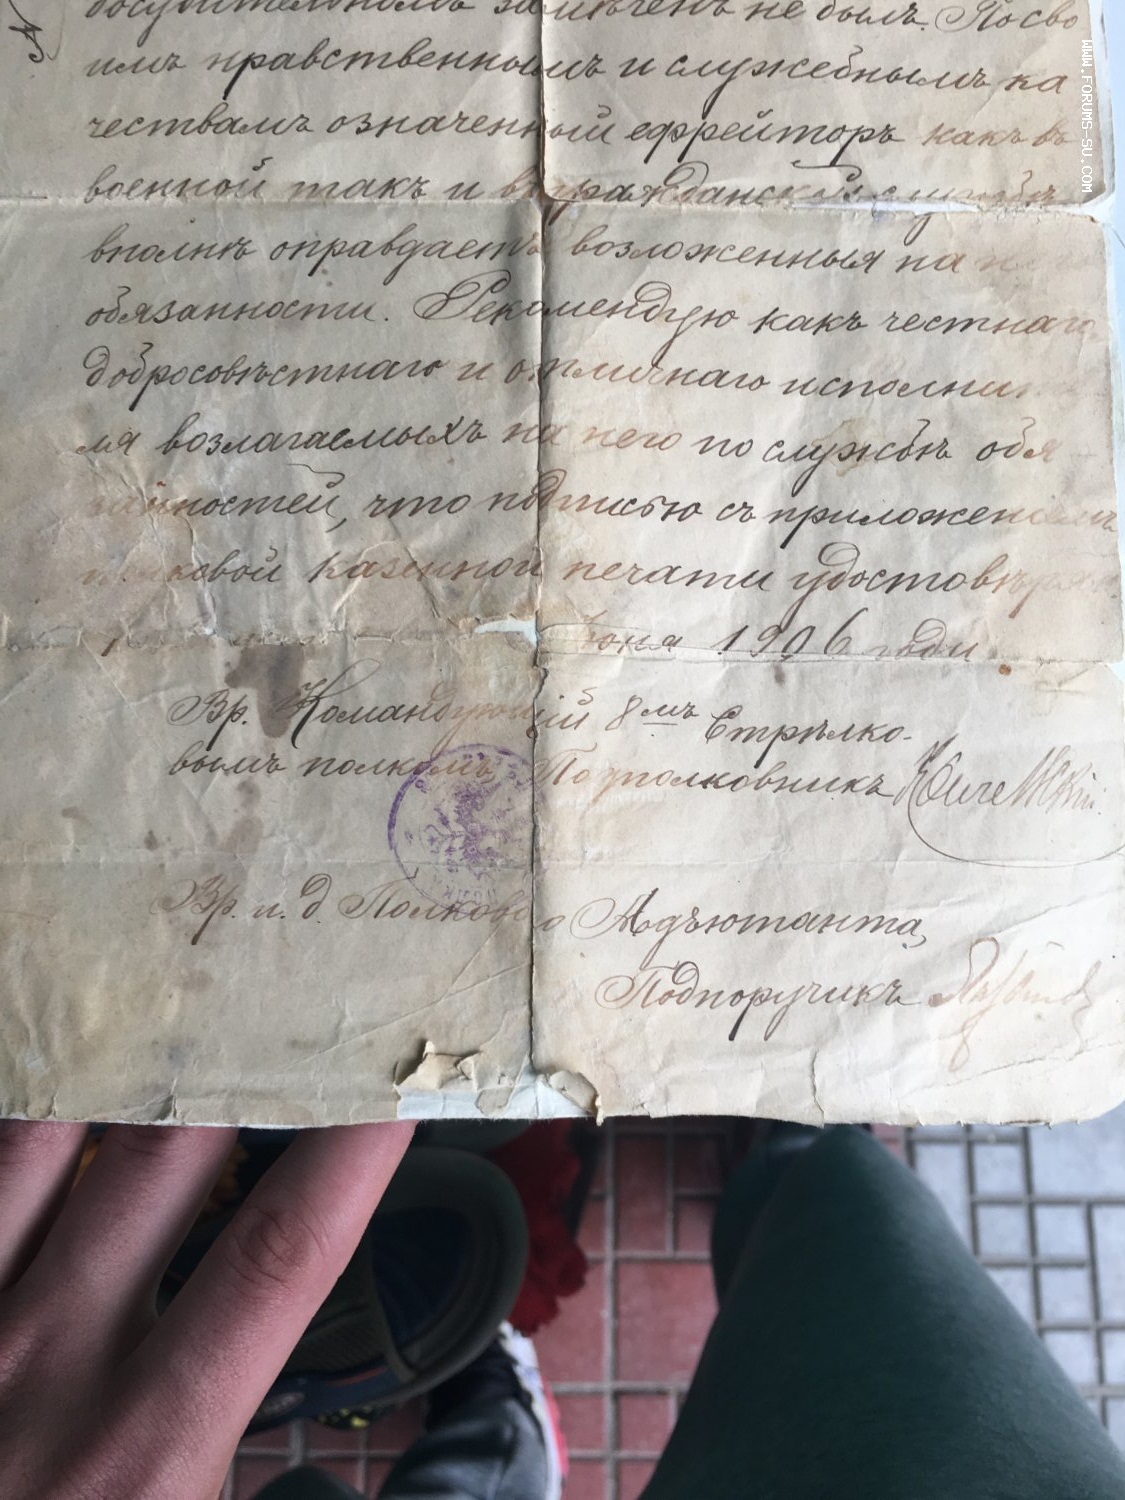 замѣченъ не былъ. По сво
имъ нравственнымъ и служебнымъ ка
чествамъ означенный ефрейторъ какъ въ
военной такъ и въ гражданской службѣ
вполнѣ оправдаетъ возложенныя на
обязанности. Рекомендую какъ честнаго,
добросовѣстнаго и отличнаго исполни
ля возлагаемыхъ на него по службѣ обя
занностей, что подписью съ приложеніемъ
полковой казенной печати удостовѣряю
Іюня 1906 года.
Вр. Командующій 8мъ Стрѣлко-
вымъ полкомъ Подполковникъ
Вр. и. д. Полкового Адъютанта,
Подпоручикъ
WWW.FORUMS-SU.COM